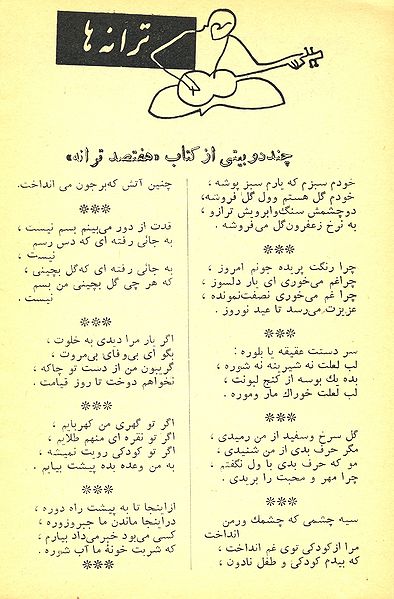 ترانه ها
چند دو بیتی از کتاب «هفتصد ترانه»
خودم سبزم که یارم سبز پوشه ،
خودم گل هستم وول گل فروشه،
دوچشمش سنگ وابرویش ترازو ،
به نرخ زعفرون گل می‌فروشه .
***
چرا رنگت پریده جونم امروز ،
چراغم می‌خوری ای یار دلسوز ،
چرا غم می‌خوری نصفت نمونده ،
عزیزت می‌رسد تا عید نوروز .
***
سر دستت عقیقه یا بلوره :
لب لعلت نه شیرینه نه شوره ،
بده یك بوسه از کنج لبونت ،
لب لعلت خوراك مار وموره .
***
گل سرخ وسفید از من رمیدی ،
مگر حرف بدی از من شنیدی ،
مو که حرف بدی با ول نگفتم ،
چرا مهر و محبت را بریدی .
***
سیه چشمی که چشمك ورمن
انداخت
مرا ازکودکی توی غم انداخت ،
که بیدم کودکی و طفل نادون ،
چنین آتش که برجون می انداخت.
***
قدت از دور می‌بینم بسم نیست ،
به جائی رفته ای که دس رسم
نیست ،
به جائی رفته ای که گل بچینی ،
که هر چی گل بچینی من بسم
نیست .
***
اگر یار مرا دیدی به خلوت ،
بگو ای بی‌وفای بی‌مروت ،
گریبون من از دست تو چاکه ،
نخواهم دوخت تا روز قیامت .
***
اگر تو گهری من کهربایم ،
اگر تو نقره ای منهم طلایم ،
اگر تو کودکی رویت نمیشه ،
به من وعده بده پیشت بیایم .
***
ازاینجا تا به پیشت راه دوره ،
دراینجا ماندن ما جبروزوره ،
کسی می‌بود خبرمی‌داد بیارم ،
که شربت خونهٔ ما آب شوره .
***